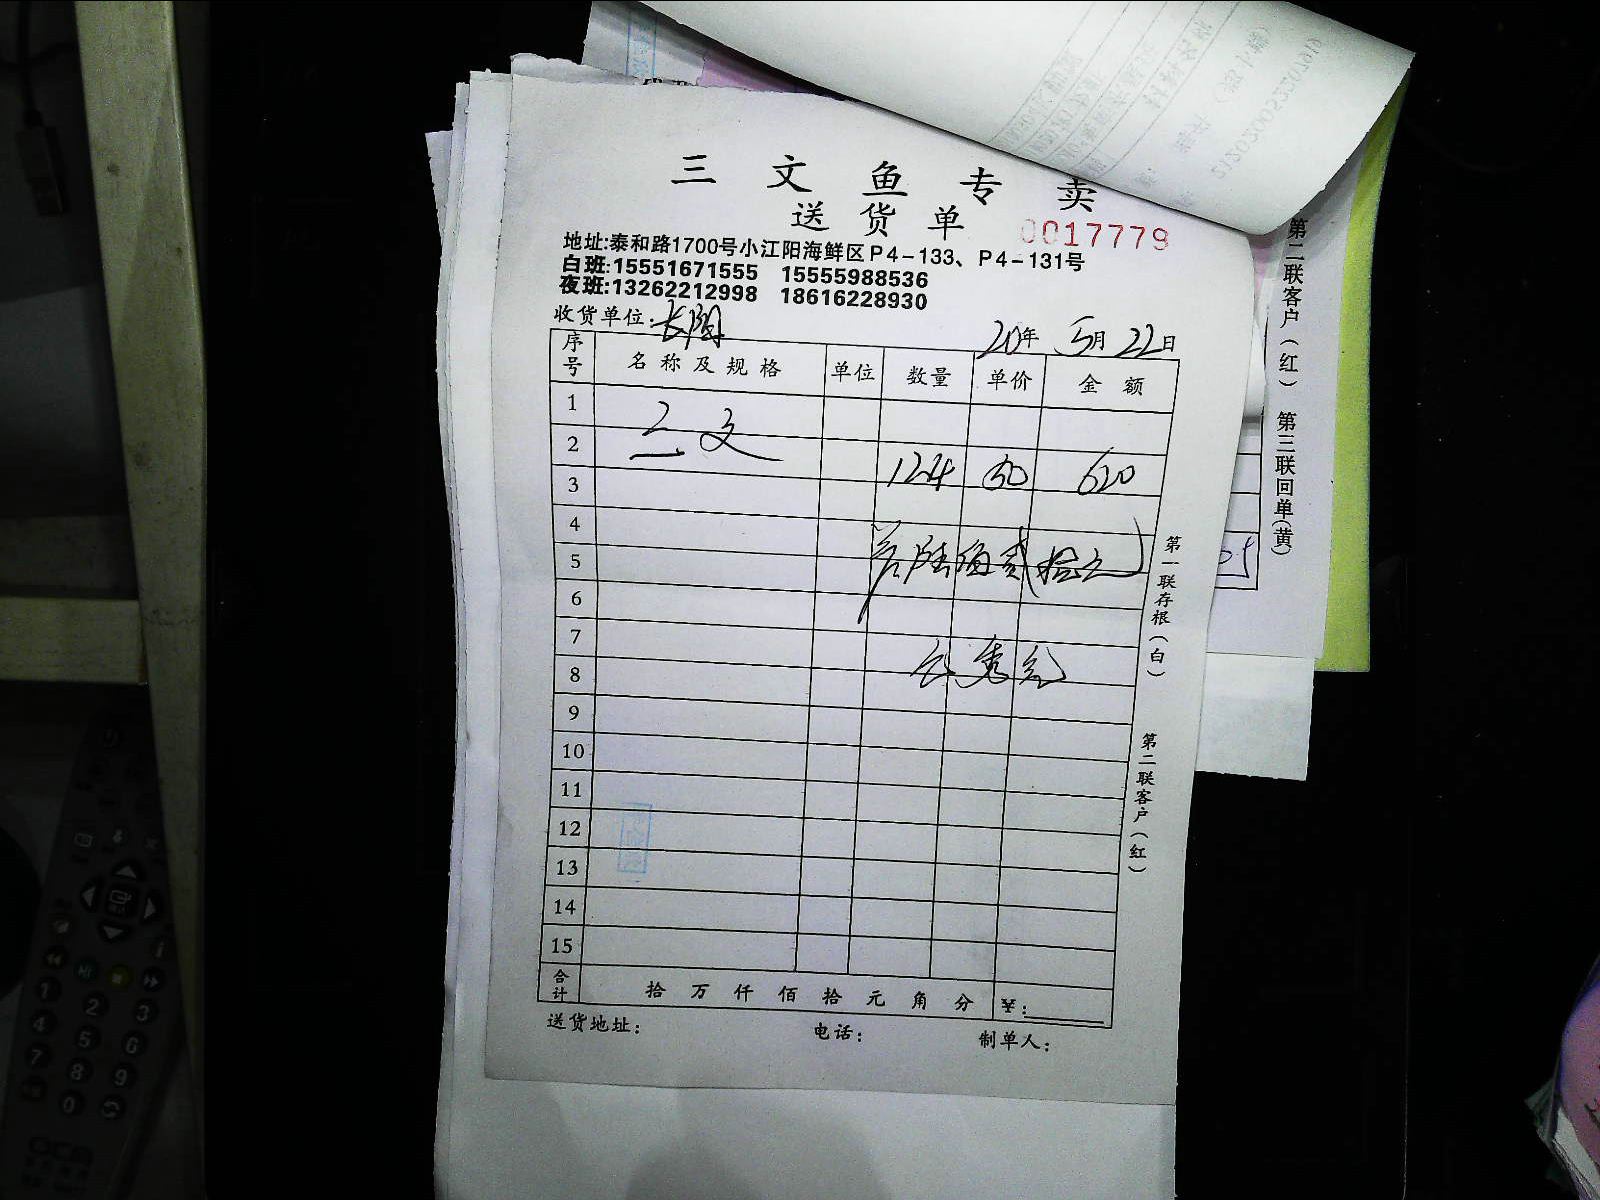 三文鱼专卖
送货单 0017779
地址:泰和路1700号小江阳海鲜区P4-133、P4-131号
白班:15551671555 15555988536
夜班:13262212998 18616228930
收货单位: 长阳 20年 5月 22日
序号 名称及规格 单位 数量 单价 金额
1
2 三文 124 50 620
3
4
5 陆佰贰拾元
6
7
8
9
10
11
12
13
14
15
合计 拾 万 仟 佰 拾 元 角 分 ¥:
送货地址: 电话: 制单人:
第一联存根(白)
第二联客户(红)
第二联客户(红) 第三联回单(黄)